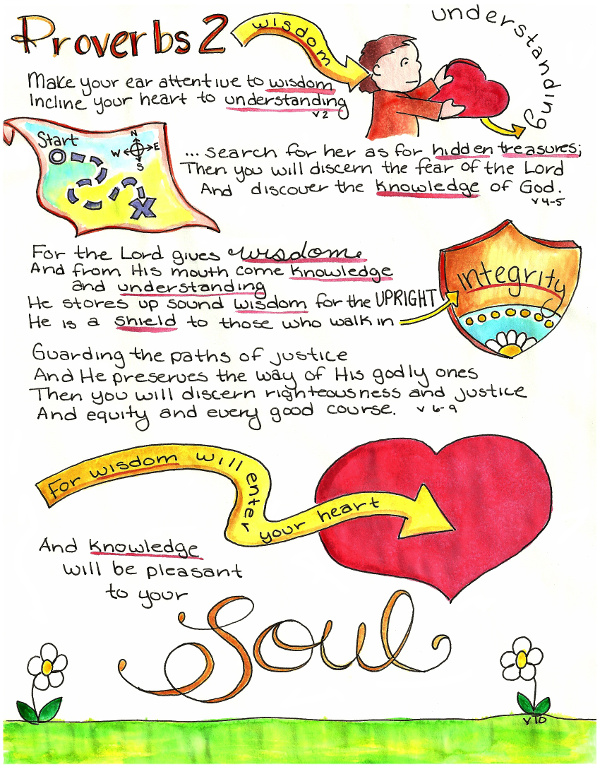 Proverbs 2
wisdom
understanding
Make your ear attentive to wisdom
Incline your heart to understanding
v2
Start
N
W E
S
... search for her as for hidden treasures;
Then you will discern the fear of the Lord
And discover the knowledge of God.
v 4-5
For the Lord gives wisdom
And from His mouth come knowledge
and understanding
He stores up sound wisdom for the UPRIGHT
He is a shield to those who walk in
integrity
Guarding the paths of justice
And He preserves the way of His godly ones
Then you will discern righteousness and justice
And equity and every good course. v 6-9
For wisdom will enter your heart
And knowledge
will be pleasant
to your
Soul
v10